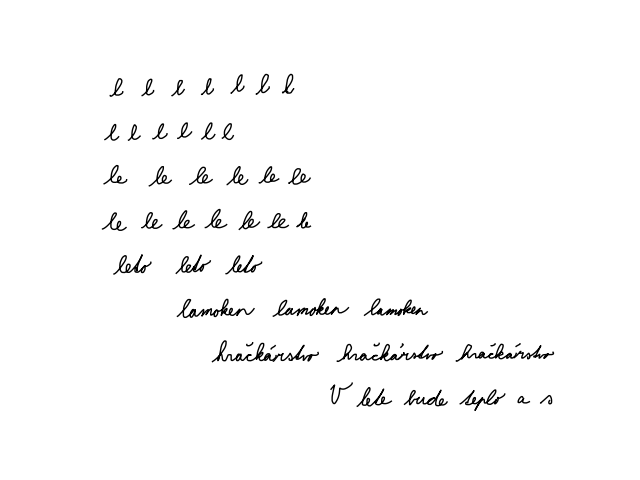 l l l l l l l
l l l l l l
le le le le le le
le le le le le le le
leto leto leto
lamoken lamoken lamoken
hračkárstvo hračkárstvo hračkárstvo
V lete bude teplo a s